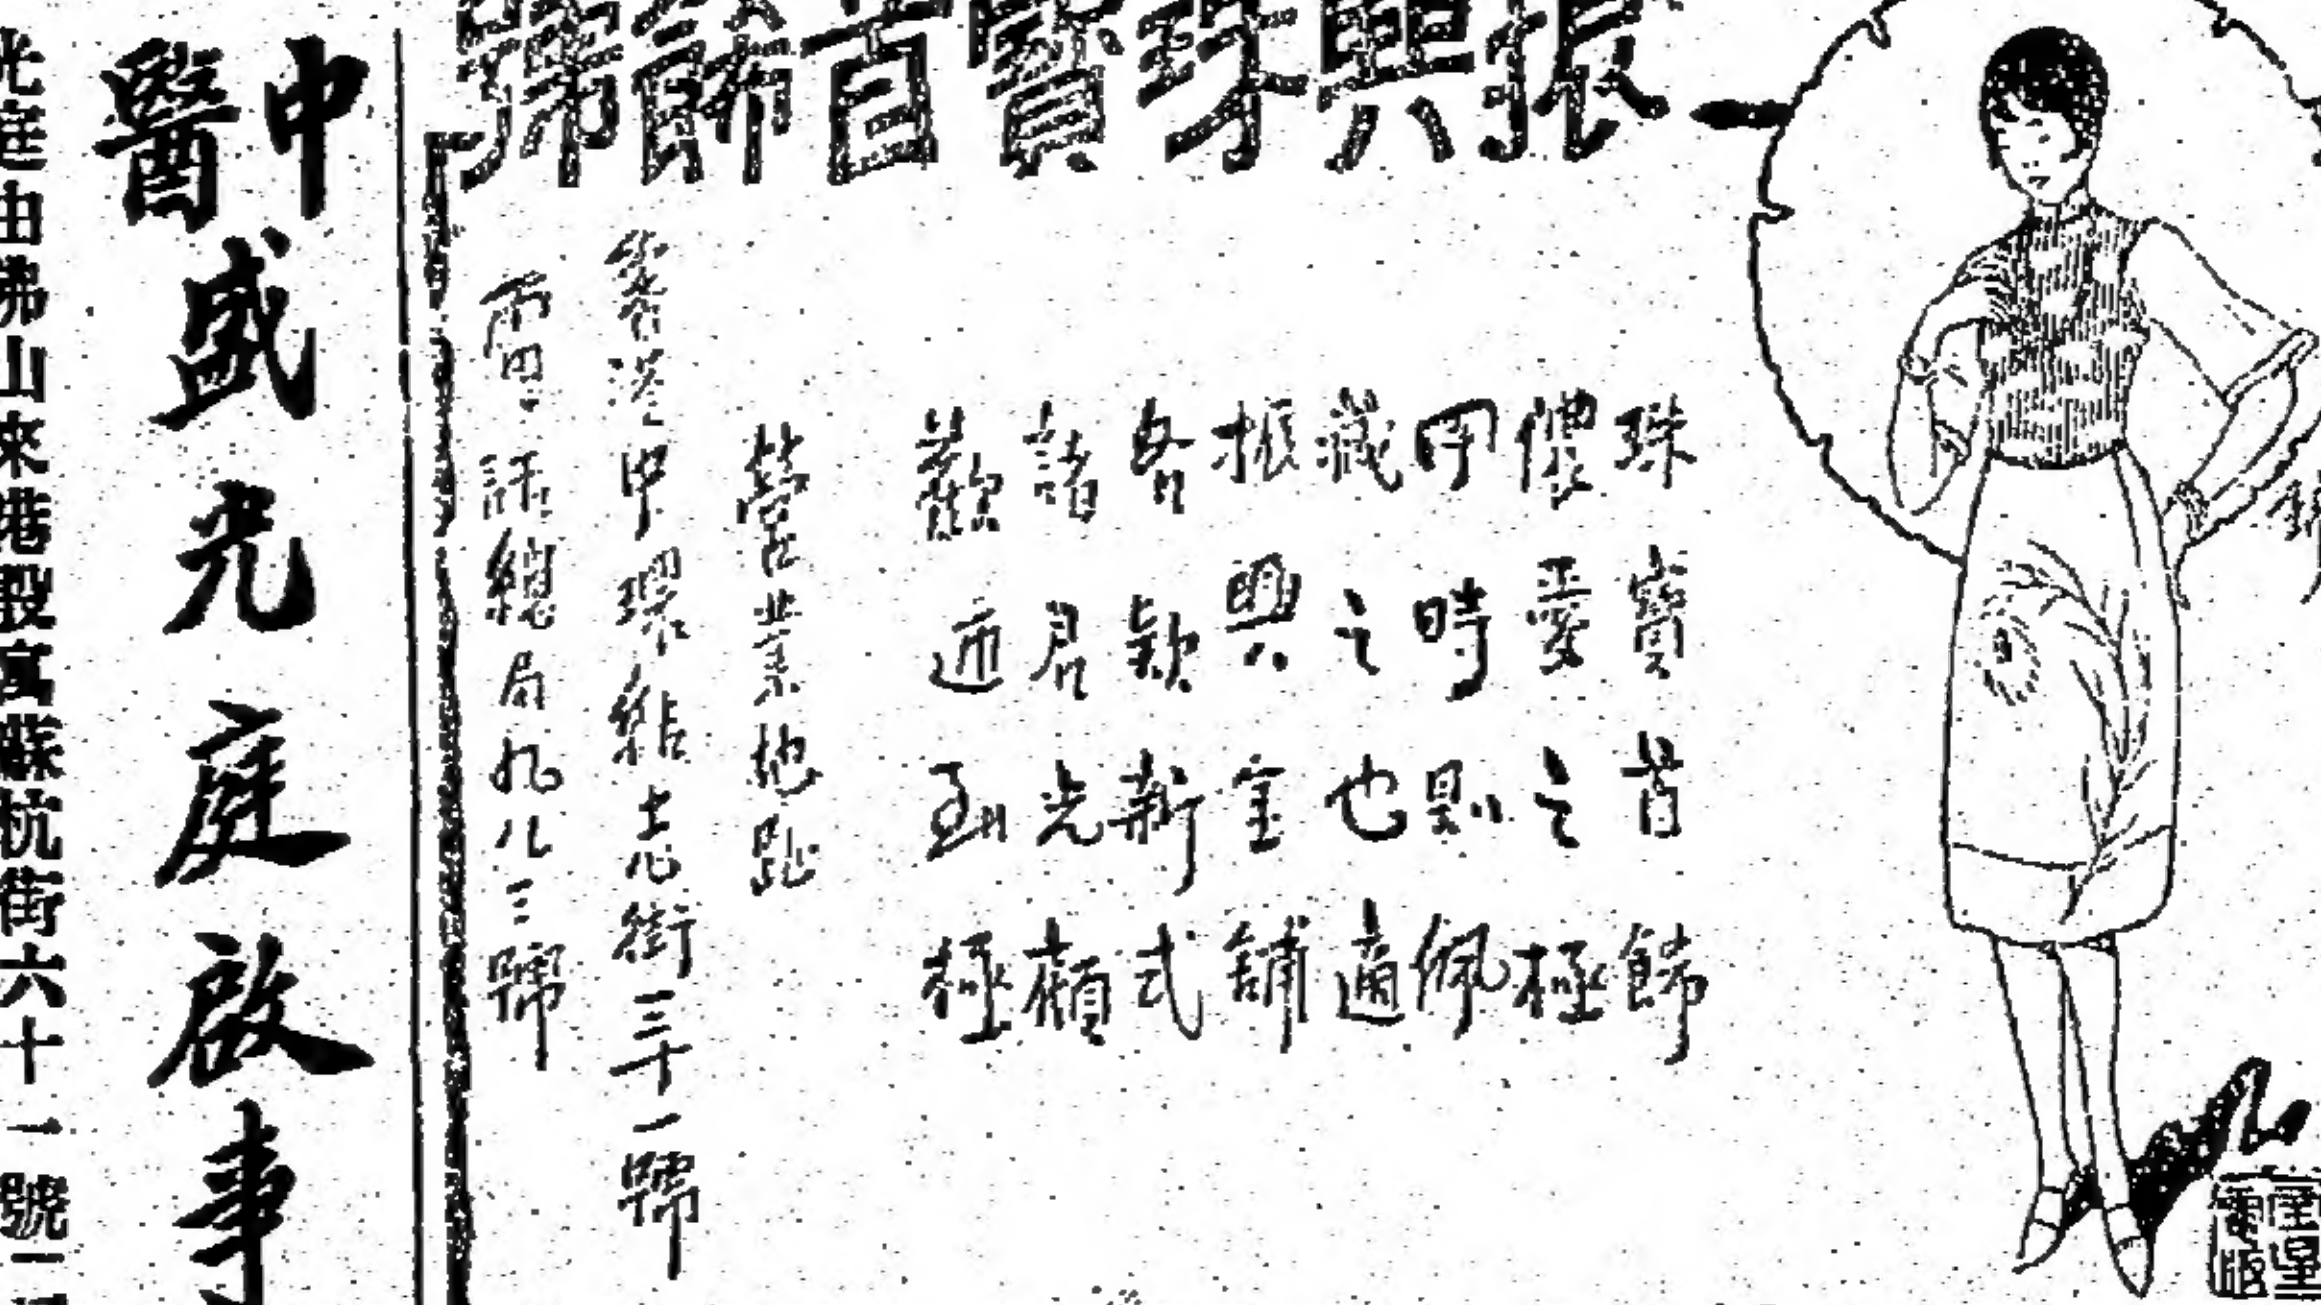 振興珠寶首飾號
珠寶首飾
儂愛之極
時佩
藏之也適
振興金舖
各款新式
諸君光顧
歡迎到極
營業地址
香港中環結志街三十一號
電話總局九八三號
中醫盛光庭啟事
光庭由佛山來港設寓蘇杭街六十一號二